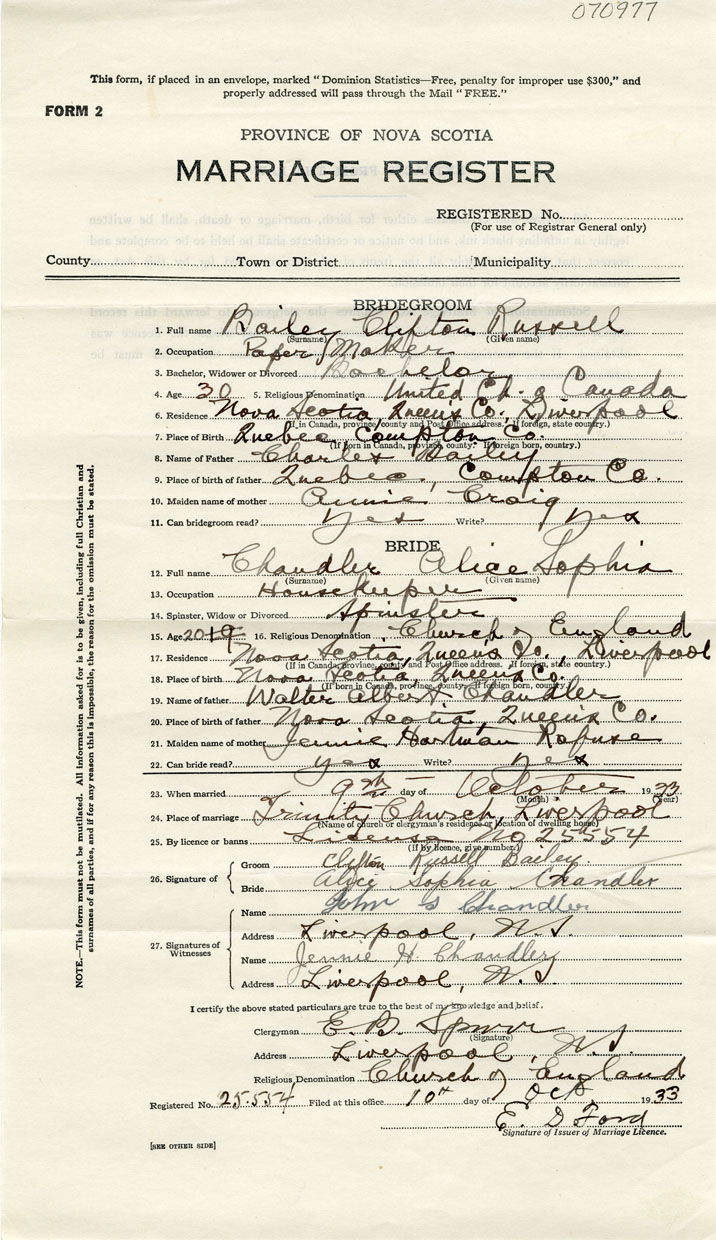 070977
This form, if placed in an envelope, marked "Dominion Statistics—Free, penalty for improper use $300," and
properly addressed will pass through the Mail "FREE."
FORM 2
PROVINCE OF NOVA SCOTIA
MARRIAGE REGISTER
REGISTERED No.
(For use of Registrar General only)
County Town or District Municipality
BRIDEGROOM
1. Full name Bailey Clifton Russell
(Surname) (Given name)
2. Occupation Paper Maker
3. Bachelor, Widower or Divorced Bachelor
4. Age 30 5. Religious Denomination United Ch. of Canada
6. Residence Nova Scotia, Queen's Co., Liverpool
(If in Canada, province, county and Post Office address. If foreign, state country.)
7. Place of Birth Quebec, Compton Co.
(If born in Canada, province, county. If foreign born, country.)
8. Name of Father Charles Bailey
9. Place of birth of father Quebec, Compton Co.
10. Maiden name of mother Annie Craig
11. Can bridegroom read? Yes Write? Yes
BRIDE
12. Full name Chandler Alice Sophia
(Surname) (Given name)
13. Occupation Housekeeper
14. Spinster, Widow or Divorced Spinster
15. Age 20 19 16. Religious Denomination Church of England
17. Residence Nova Scotia, Queens Co., Liverpool
(If in Canada, province, county and Post Office address. If foreign, state country.)
18. Place of birth Nova Scotia, Queens Co.
(If born in Canada, province, county. If foreign born, country.)
19. Name of father Walter Albert Chandler
20. Place of birth of father Nova Scotia, Queen's Co.
21. Maiden name of mother Jennie Hartman Rafuse
22. Can bride read? Yes Write? Yes
23. When married 9th day of October 1933
(Month) (Year)
24. Place of marriage Trinity Church, Liverpool
(Name of church or clergyman's residence or location of dwelling house)
25. By licence or banns License No 25554
(If by licence, give number)
26. Signature of Groom Clifton Russell Bailey
Bride Alice Sophia Chandler
27. Signatures of Witnesses Name John S Chandler
Address Liverpool, N.S.
Name Jennie H. Chandler
Address Liverpool, N.S.
I certify the above stated particulars are true to the best of my knowledge and belief.
Clergyman E. B. Spurr
(Signature)
Address Liverpool, N.S.
Religious Denomination Church of England
Registered No. 25.554 Filed at this office 10th day of Oct 1933
E. D Ford
Signature of Issuer of Marriage Licence.
[SEE OTHER SIDE]
NOTE.—This form must not be mutilated. All information asked for is to be given, including full Christian and
surnames of all parties, and if for any reason this is impossible, the reason for the omission must be stated.